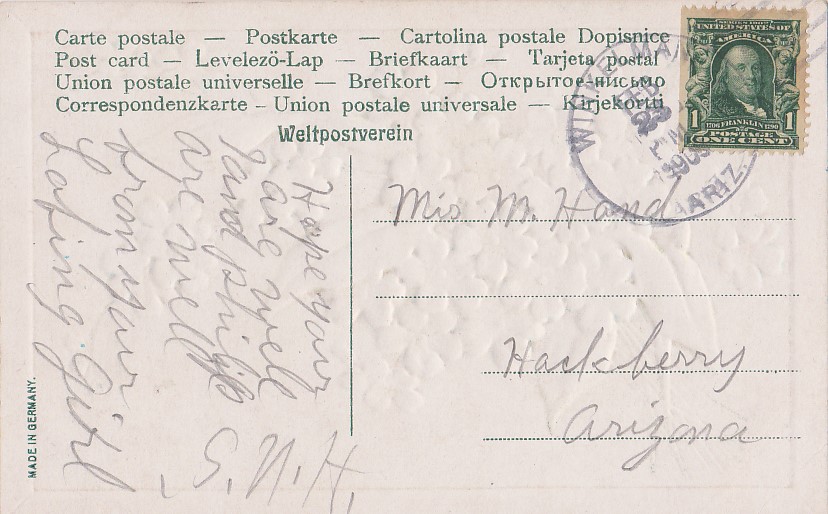 Carte postale — Postkarte — Cartolina postale Dopisnice
Post card — Levelezö-Lap — Briefkaart — Tarjeta postal
Union postale universelle — Brefkort — Открытое-письмо
Correspondenzkarte – Union postale universale — Kirjekortti
Weltpostverein
SERIES 1902
UNITED STATES OF
AMERICA
1706 FRANKLIN 1790
1 POSTAGE 1
ONE CENT
FEB
ARIZ.
Mis M. Hand
Hackberry
Arizona
Hope your
are well
and philip
are well
from your
Lofing Girl
G. N. H.
MADE IN GERMANY.